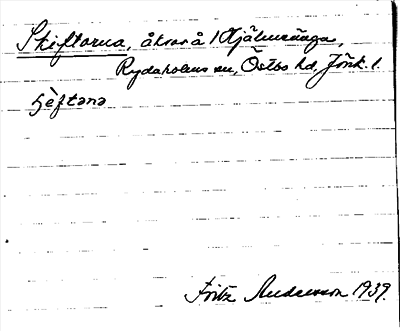 Skiftarna, åkrar å Hjälmsänga,
Rydaholms sn, Östbo hd, Jönk. l.
Fritz Andersson 1939.